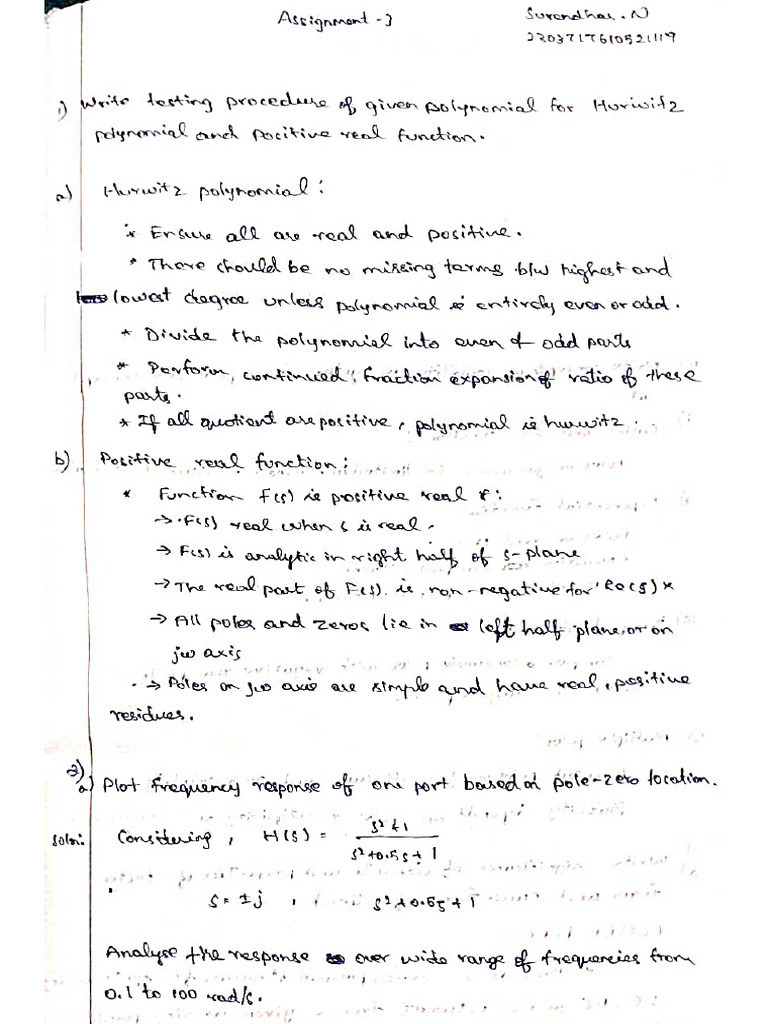 Assignment - 3
Surendhar . N
1) Write testing procedure of given polynomial for Hurwitz
polynomial and positive real function.
a) Hurwitz polynomial :
* Ensure all are real and positive.
* There should be no missing terms b/w highest and
lowest degree unless polynomial is entirely even or odd.
* Divide the polynomial into even & odd parts
* Perform, continued fraction expansion of ratio of these
parts.
* If all quotient are positive, polynomial is hurwitz.
b) Positive real function:
* Function F(s) is positive real if:
→ F(s) real when s is real.
→ F(s) is analytic in right half of s-plane
→ The real part of F(s) is non-negative for Re(s) x
→ All poles and zeros lie in left half plane or on
jω axis
→ Poles on jω axis are simple and have real, positive
residues.
2)
a) Plot frequency response of one port based on pole-zero location.
Soln: Considering, H(s) = s²+1 / s²+0.5s+1
s = ±j , s²+0.5s+1
Analyse the response over wide range of frequencies from
0.1 to 100 rad/s.